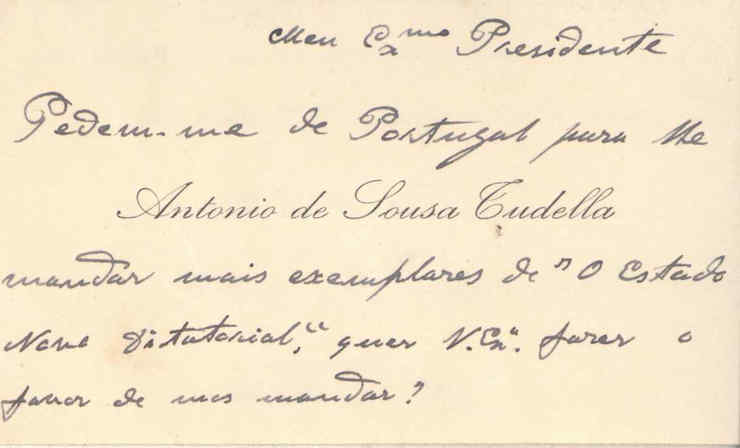 Meu Exmo Presidente
Pedem-me de Portugal para lhe
Antonio de Sousa Tudella
mandar mais exemplares de "O Estado
Novo Ditatorial," quer V. Exa. fazer o
favor de mos mandar?